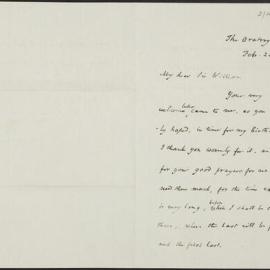 The Oratory
Feb. 2
My dear Sir William
Your very
welcome letter came to me, as you
ly hoped, in time for my birth
I thank you warmly for it, an
for your good prayers for me
need them much, for the time ca
is very long, before I shall be
there, where the last will be f
and the first last.